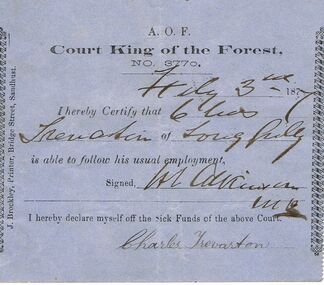 A. O. F.
Court King of the Forest,
NO. 3770.
3rd 187
I hereby Certify that Chas
of Long Gully
is able to follow his usual employment,
Signed, Atkinson
I hereby declare myself off the Sick Funds of the above Court.
Charles Trevarton
J. Brockley, Printer, Bridge Street, Sandhurst.